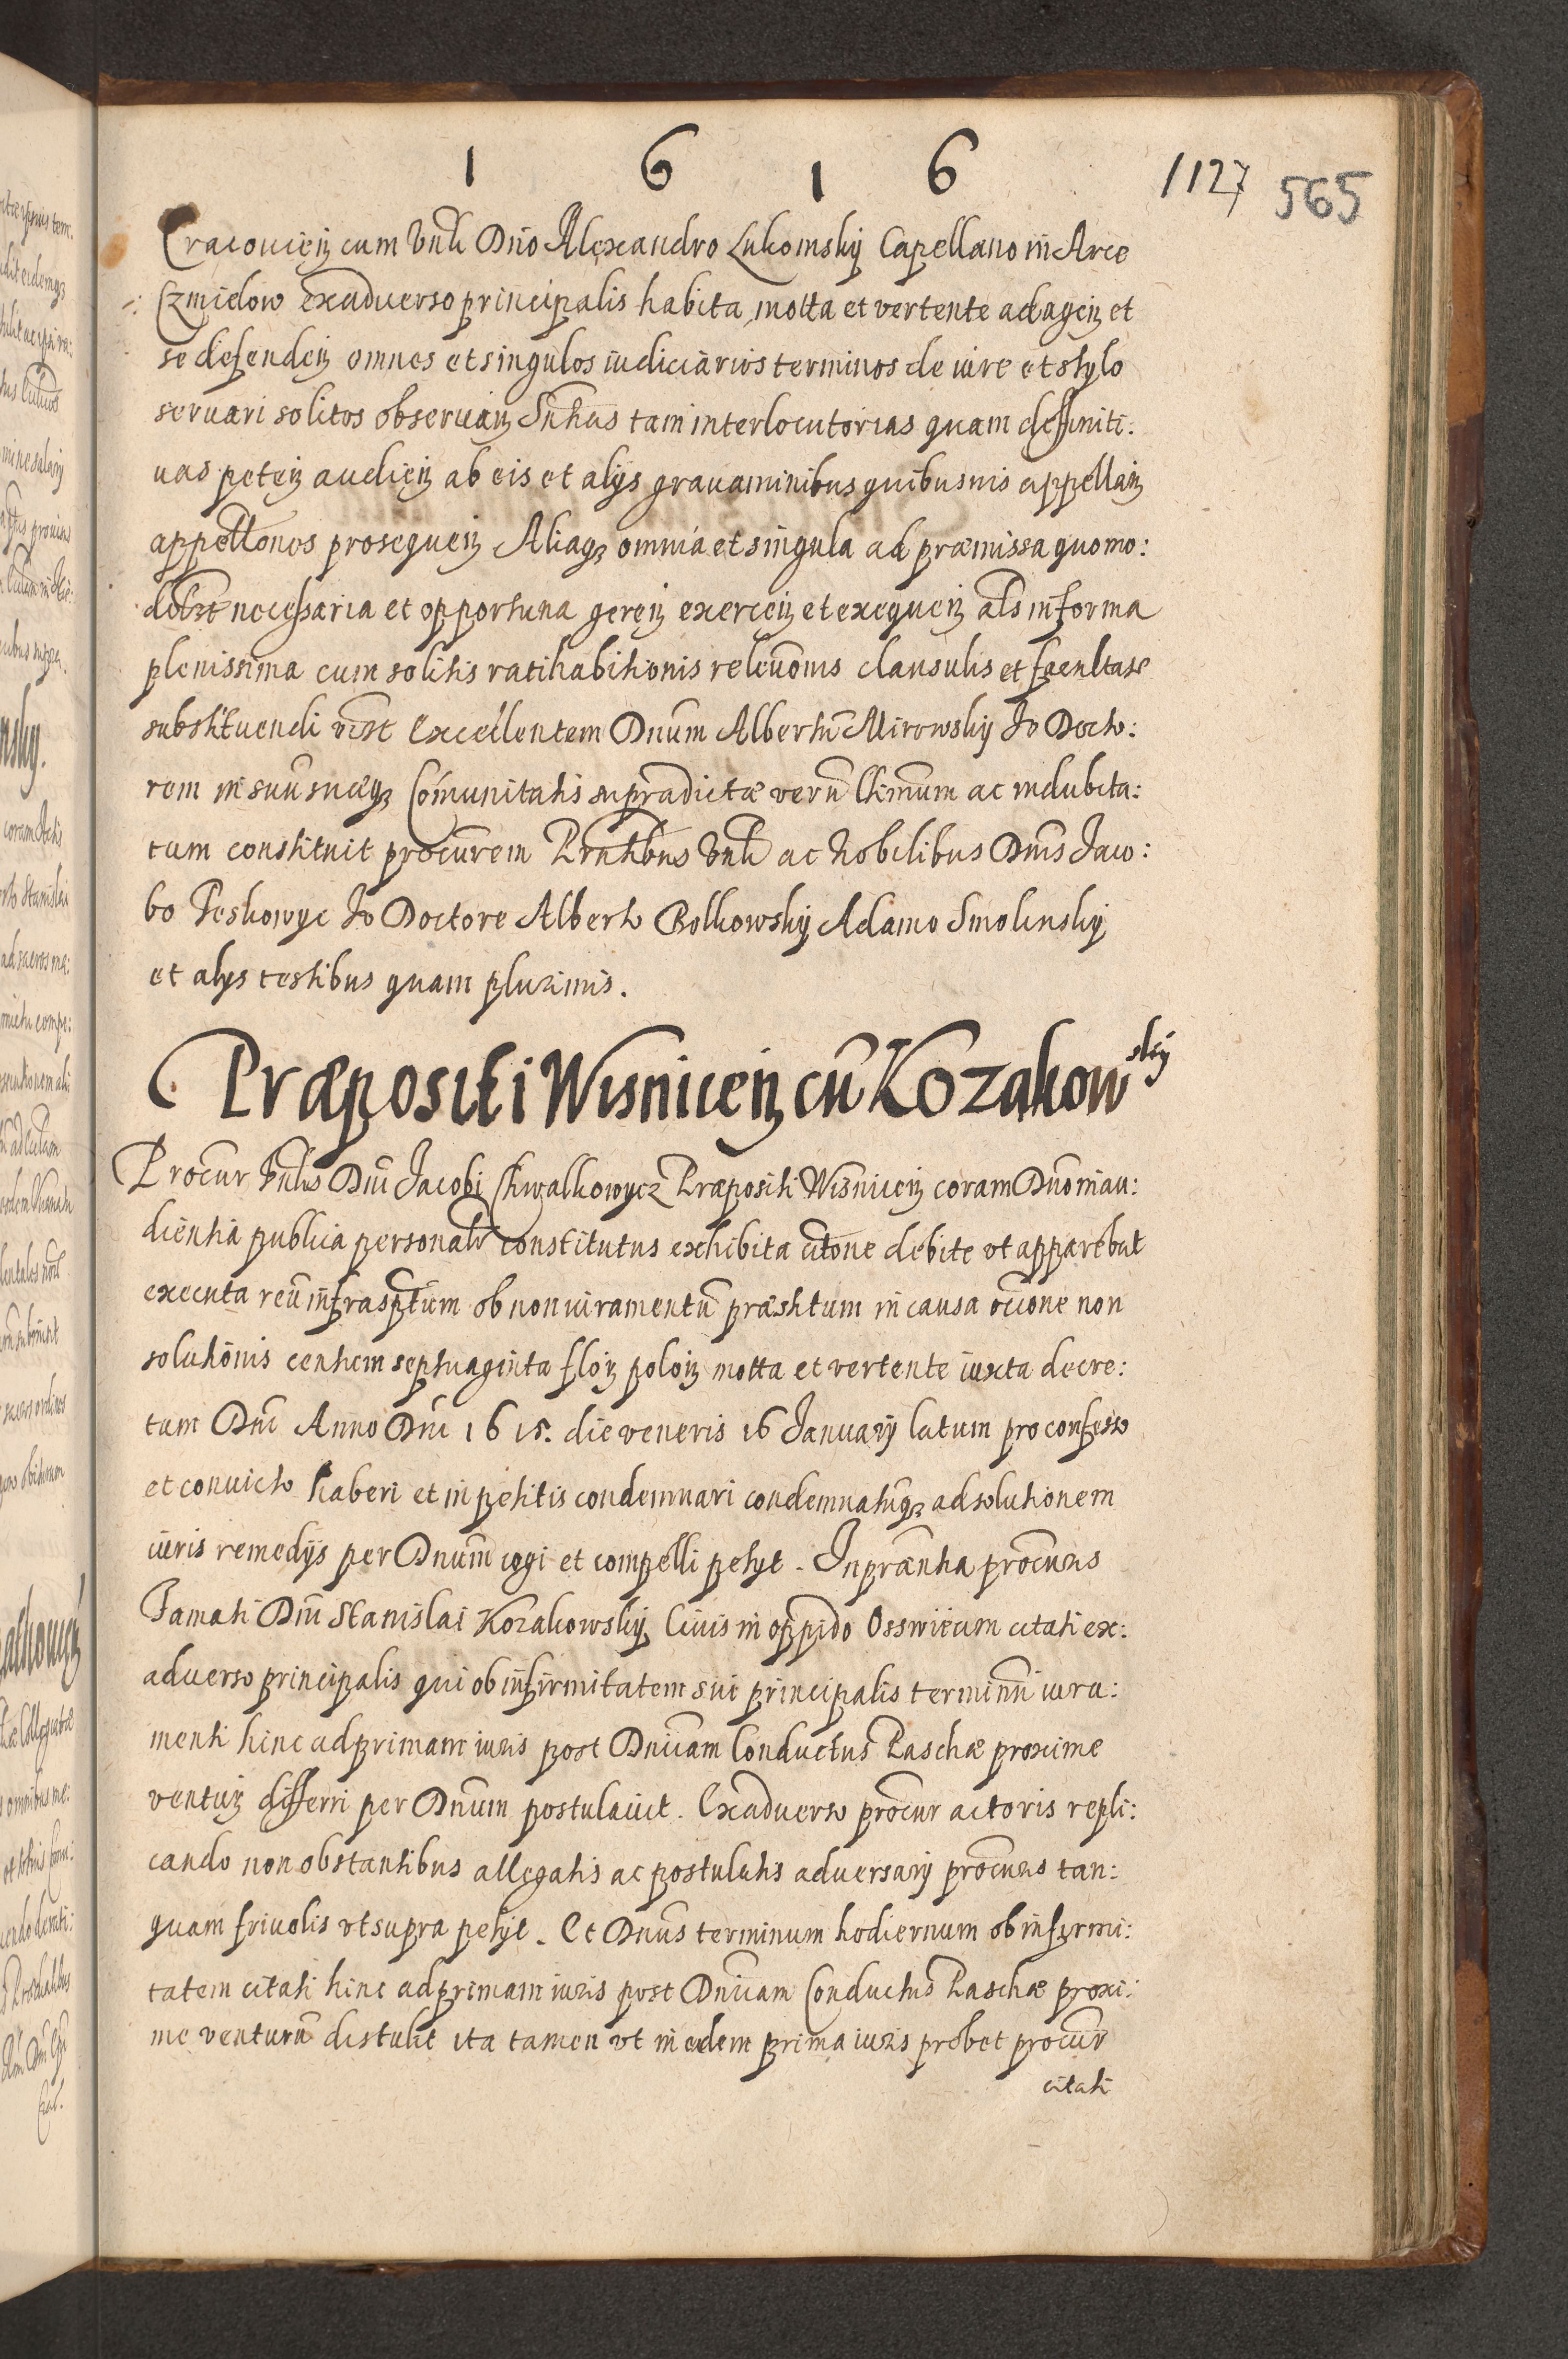 1 6 1 6
1127 565
Cracouien cum Vnli Dño Alexandro Lukomsky Capellano in Arce
Czmielow exaduerso principalis habita, motta et vertente ad agen et
se defenden omnes et singulos iudiciarios terminos de iure et stylo
seruari solitos obseruan Sñtias tam interlocutorias quam deffiniti:
uas peten audien ab eis et alijs grauaminibus quibusuis appellan
appellones prosequen Aliaqz omnia et singula ad præmissa quomo:
dolzt necessaria et opportuna geren exercen et exequen als in forma
plenissima cum solitis ratihabitionis releuonis clausulis et facultate
substituendi vizt Excellentem Dnum Albertũ Mirowsky Iv Docto:
rem in suũ suæqz Comunitatis supradictæ verũ Ltimum ac indubita:
tum constituit procurem Prntibus Vnli ac Nobilibus Dnis Iaco:
bo Peskowyc Iv Doctore Alberto Bolkowsky Adamo Smolensky
et alys testibus quam plurimis.
Præpositi Wisnicen cũ Kozakowsky
Procur Vnlis Dni Jacobi Chwalkowycz Præpositi Wisnicen coram Dno in au:
dientia publica personalr constitutus exhibita citone debite vt apparebat
executa reũ infrasptum ob non iuramentũ præstitum in causa occone non
solutionis centum septuaginta flon polon motta et vertente iuxta decre:
tum Dni Anno Dni 1615. die veneris 16 Januarij latum pro confesso
et conuicto haberi et in petitis condemnari condemnatũqz ad solutionem
iuris remedijs per Dnum cogi et compelli petyt. In præntia procuris
Famati Dni Stanislai Kozakowsky Ciuis in oppido Osswiecim citati ex:
aduerso principalis qui ob infirmitatem sui principalis terminũ iura:
menti hinc ad primam iuris post Dnicam Conductus Paschæ proxime
ventun differri per Dnum postulauit. Exaduerso procur actoris repli:
cando non obstantibus allegatis ac postulatis aduersarij procuris tan:
quam friuolis vt supra petyt. Et Dnus terminum hodiernum ob infirmi:
tatem citati hinc ad primam iuris post Dnicam Conductus Paschæ proxi:
me venturũ distulit ita tamen vt in eadem prima iuris probet procur
citati